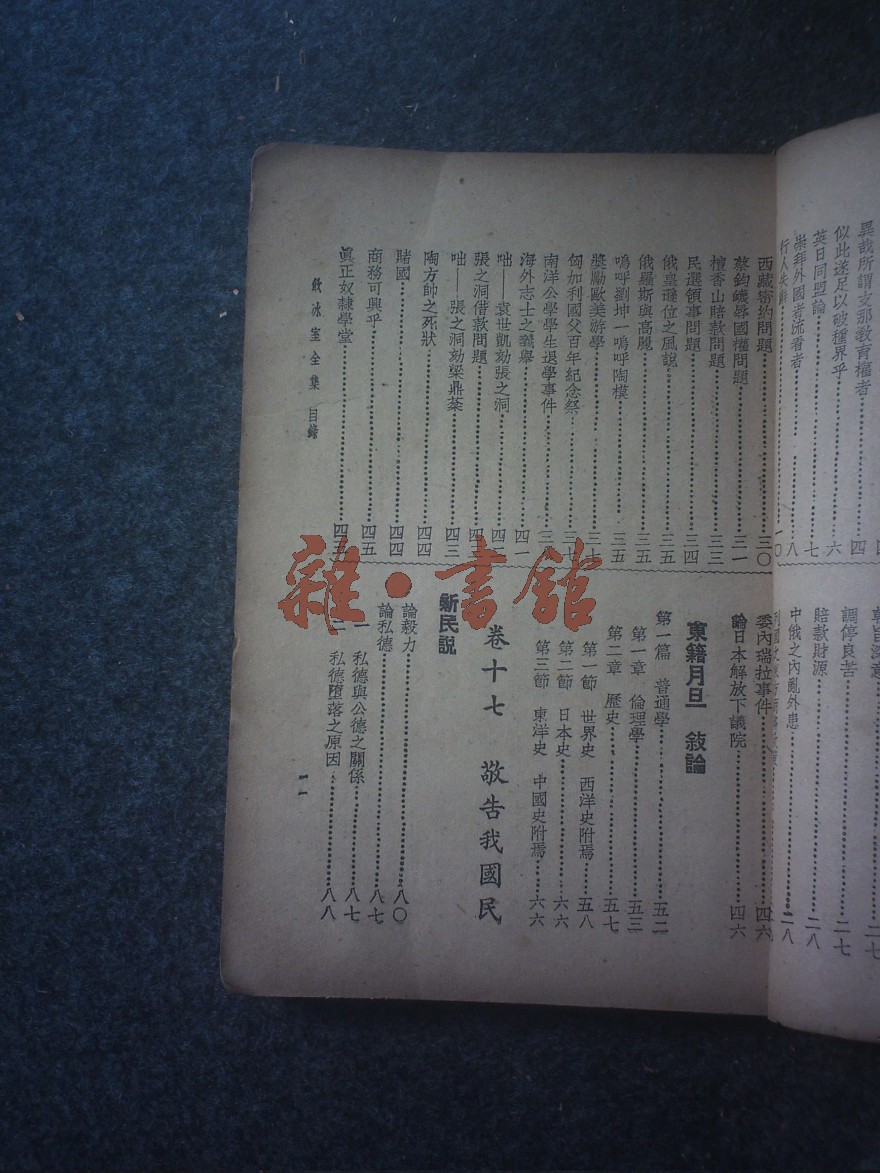 異哉所謂支那教育權者
似此遂足以破種界乎
英日同盟論 六
崇拜外國者流看者 七
行人失辭 八
調停良苦 二七
賠款財源 二八
中俄之內亂外患 二八
西藏密約問題 三〇
蔡鈞蠛辱國權問題 三一
檀香山賠款問題 三三
民選領事問題 三四
俄皇遜位之風說 三五
俄羅斯與高麗 三五
嗚呼劉坤一嗚呼陶模 三五
獎勵歐美游學 三七
匈加利國父百年紀念祭
南洋公學學生退學事件
海外志士之義舉 四一
咄——袁世凱劾張之洞
張之洞借款問題
咄——張之洞劾梁鼎棻 四三
陶方帥之死狀 四四
賭國 四四
商務可興乎 四五
眞正奴隸學堂 四五
委內瑞拉事件 四六
論日本解放下議院 四六
東籍月旦 敍論
第一篇 普通學 五二
第一章 倫理學 五三
第二章 歷史 五七
第一節 世界史 西洋史附焉 五八
第二節 日本史 六六
第三節 東洋史 中國史附焉 六六
卷十七 敬告我國民
新民説
論毅力 八〇
論私德 八七
一 私德與公德之關係 八七
二 私德墮落之原因 八八
飲冰室全集 目錄
一一
雜·書館